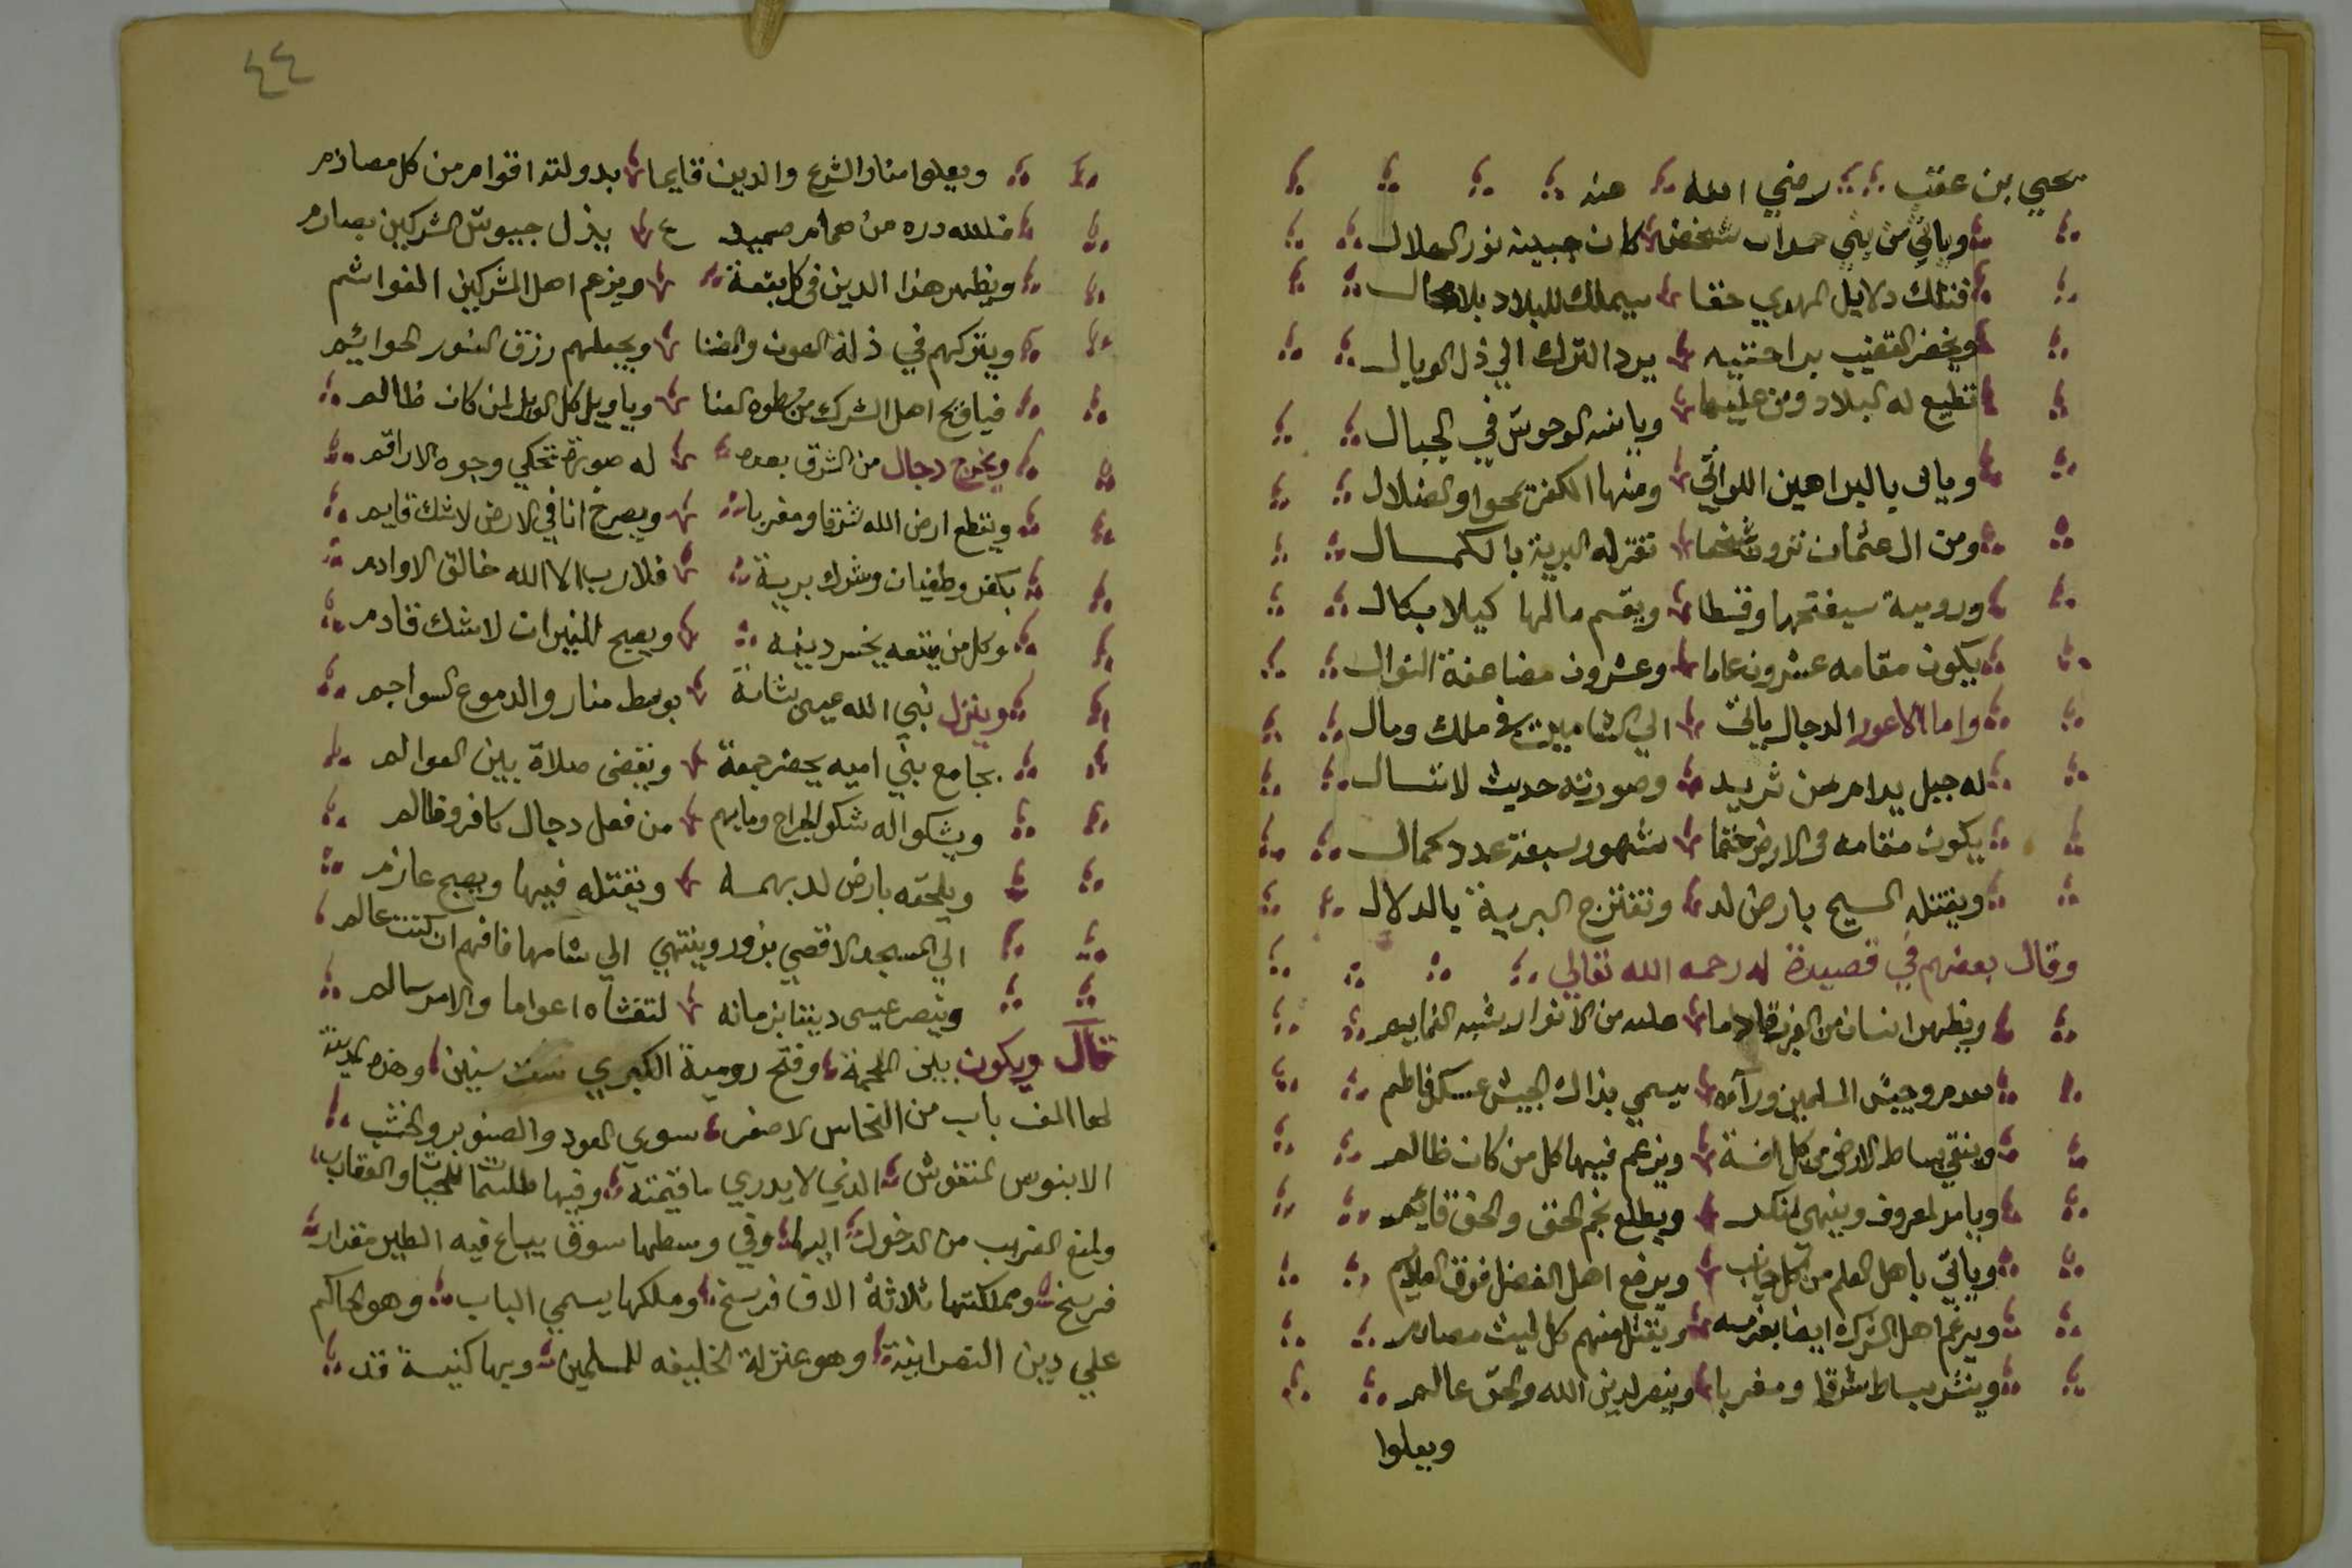 يحيي بن عقب رضي الله عنه
وياتي من بني حمدان شخص كان جبينه نور الهلال
فتلك دلايل المهدي حقا سيملك للبلاد بلا محال
ويخضر القضيب براحتيه يرد الترك الي ذل الوبال
تطيع له البلاد ومن عليها ويانسه الوحوش في الجبال
وياتي بالبراهين اللواتي ومنها الكفر يمحوا والضلال
ومن ال عثمان ترون شخصا تقر له البرية بالكمال
ورومية سيفتحها وقسطا ويقسم مالها كيلا بكال
يكون مقامه عشرون عاما وعشرون مضاعفة النوال
واما الاعور الدجال ياتي الي الشامين في ملك ومال
له جبل يدام من ثريد وصورته حديث لا تسال
يكون مقامه في الارض حتما شهور سبعة عدد كمال
ويقتله المسيح بارض لد وتفترج البرية بالدلال
وقال بعضهم في قصيدة له رحمه الله تعالي
ويظهر انسان من الغرب قادما عليه من الانوار شبه الغمايم
يقدم وجيش المسلمين ورآءه يسمي بذاك الجيش عسكر فاطم
وينقي بساط الارض من كل افة ويزعم فيها كل من كان ظالم
ويامر لمعروف وينهي لمنكر ويطلع نجم الحق والحق قائم
وياتي باهل العلم من كل جانب ويرفع اهل الفضل فوق العلايم
ويرغم اهل الشرك ايضا بعزمه ويقتل منهم كل ليث مصادم
وينشر بساط شرقا ومغربا وينصر لدين الله والحق عالم
ويعلوا
٤٤
ويعلوا منار الشرع والدين قايما بدولته اقوام من كل مصادم
فلله دره من همام صميدع ينزل جيوش الشركين بصارم
ويظهر هذا الدين في كل بقعة ويزعم اهل المشركين الغواشم
ويتركهم في ذلة الهون والضنا ويجعلهم رزق النسور الحوائم
فيا ويح اهل الشرك من سطوه العنا ويا ويل كل الويل لمن كان ظالم
ويخرج دجال من الشرق بعده له صورة تحكي وجوه الاراقم
ويقطع ارض الله شرقا ومغربا ويصرخ انا في الارض لا شك قايم
بكفر وطغيان وشرك برية فلا رب الا الله خالق الاوادم
وكل من يتبعه يخسر دينه ويصبح للنيران لا شك قادم
وينزل نبي الله عيسى بشامة بوسط منار والدموع السواجم
بجامع بني اميه يحضر جمعة ويقضى صلاة بين العوالم
ويشكوا له شكو الجراح وما بهم من فعل دجال كافر وظالم
ويلحقه بارض لد بهمسه ويقتله فيها ويصبح عازم
الي المسجد الاقصي يزور وينتهي الي شامها فافهم ان كنت عالم
وينصر عيسى ديننا بزمانه لتغشاه اعواما والامر سالم
قال ويكون بين الملحمة وفتح رومية الكبري ست سنين وهذه المدينة
لها الف باب من النحاس الاصفر سوي العود والصنوبر والخشب
الابنوس المنقوش الذي لا يدري ما قيمته وفيها طلسما للحيات والعقارب
ولمنع الغريب من الدخول اليها وفي وسطها سوق يباع فيه الطير مقدار
فرسخ ومملكتها ثلاثة الاف فرسخ وملكها يسمي الباب وهو الحاكم
علي دين النصرانية وهو بمنزلة الخليفه للمسلمين وبها كنيسة قد